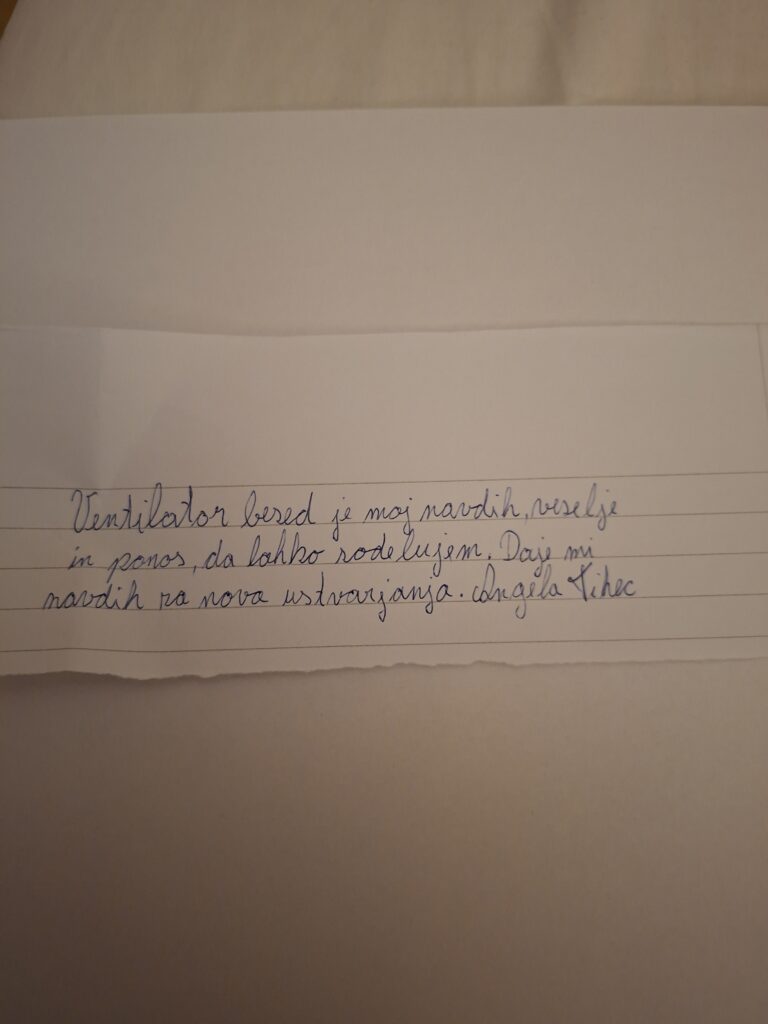 Ventilator besed je moj navdih, veselje
in ponos, da lahko sodelujem. Daje mi
navdih za nova ustvarjanja. Angela Tihec